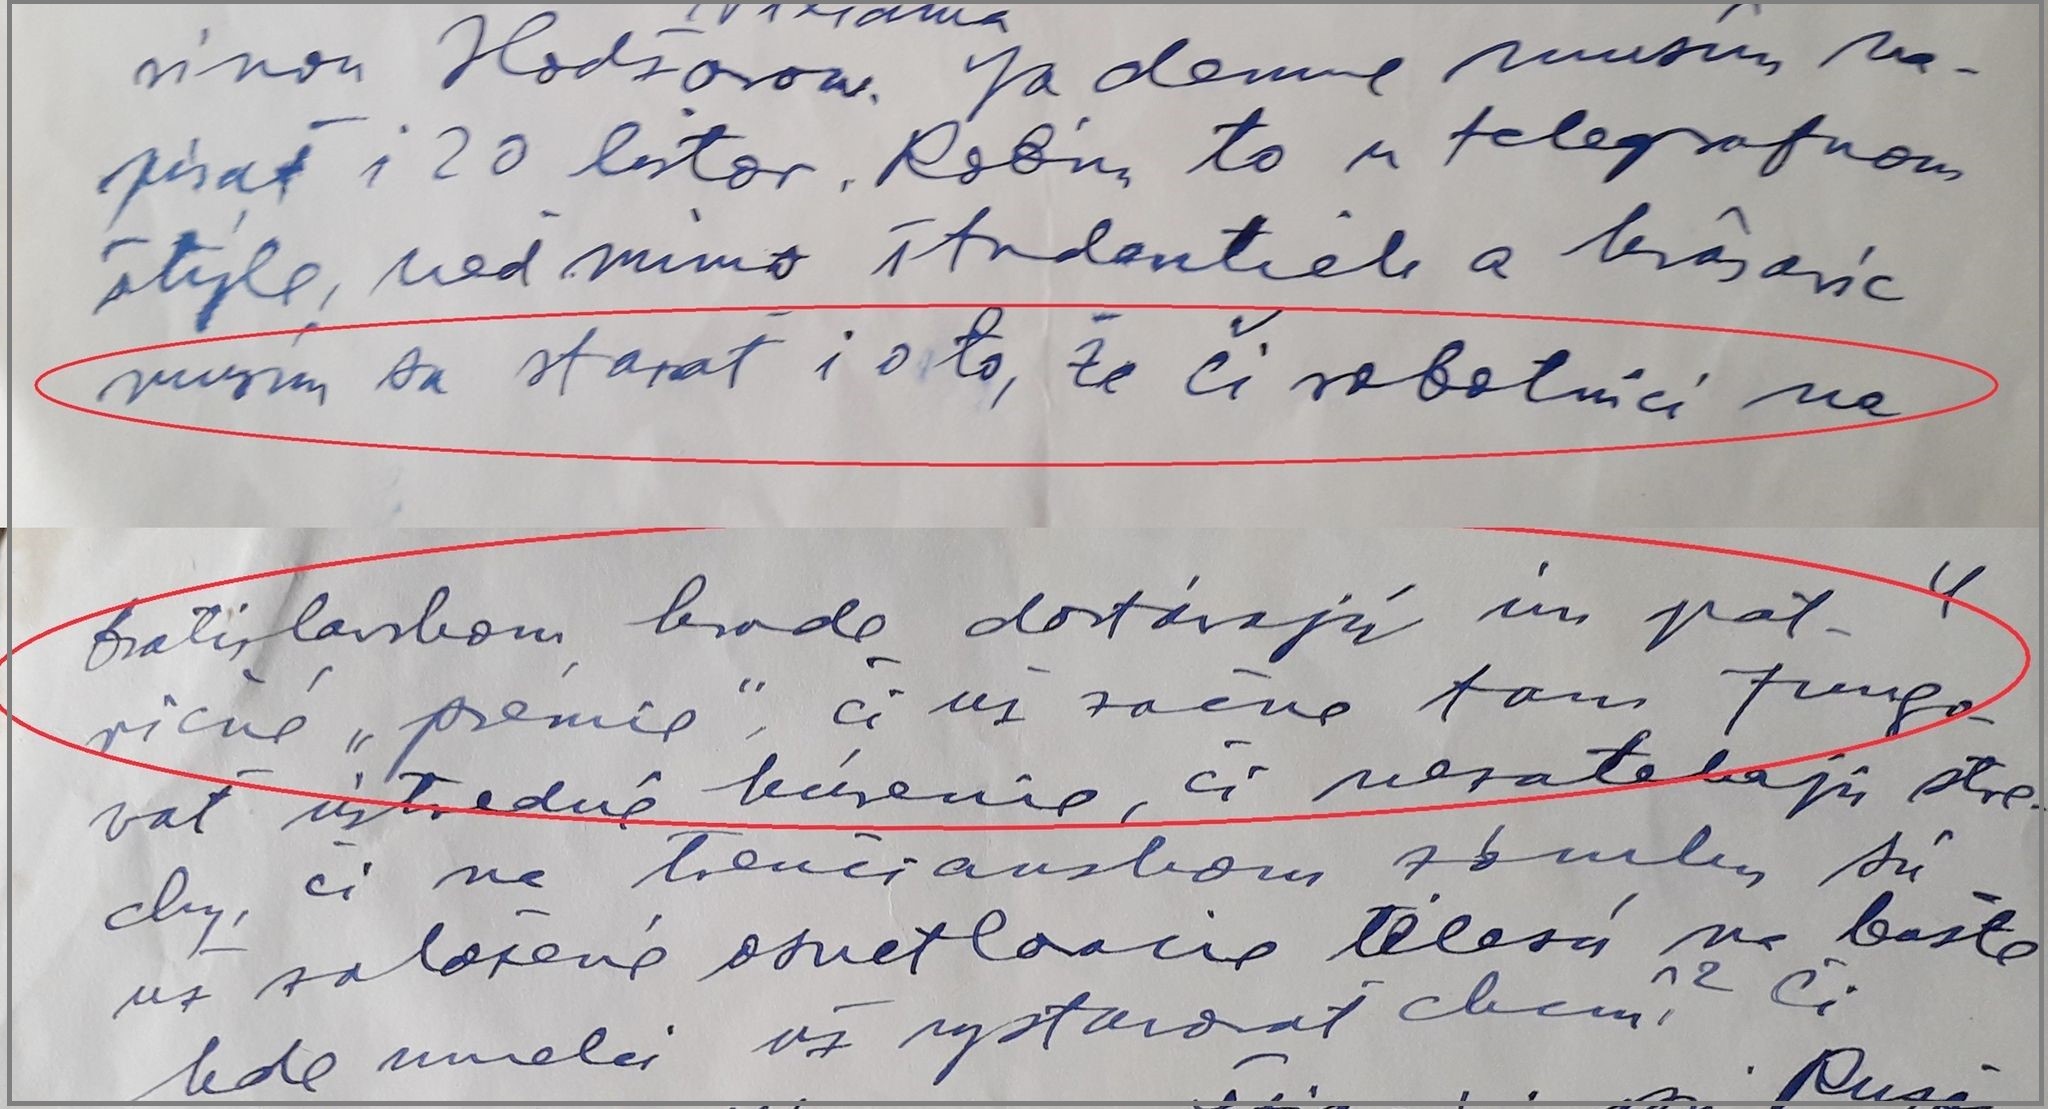 rínou Hodžovou. Ja denne musím na-
písať i 20 listov. Robím to v telegrafnom
štýle, veď mimo študentiek a krásavíc
musím sa starať i o to, že či robotníci na
4
bratislavskom hrade dostávajú im pat-
ričné „prémie“, či už začne tam fungo-
vať ústredné kúrenie, či nezatekajú stre-
chy, či na trenčianskom zámku sú
už založené osvetlovacie télesá na bašte
kde umelci už vystavovať chcú? Či